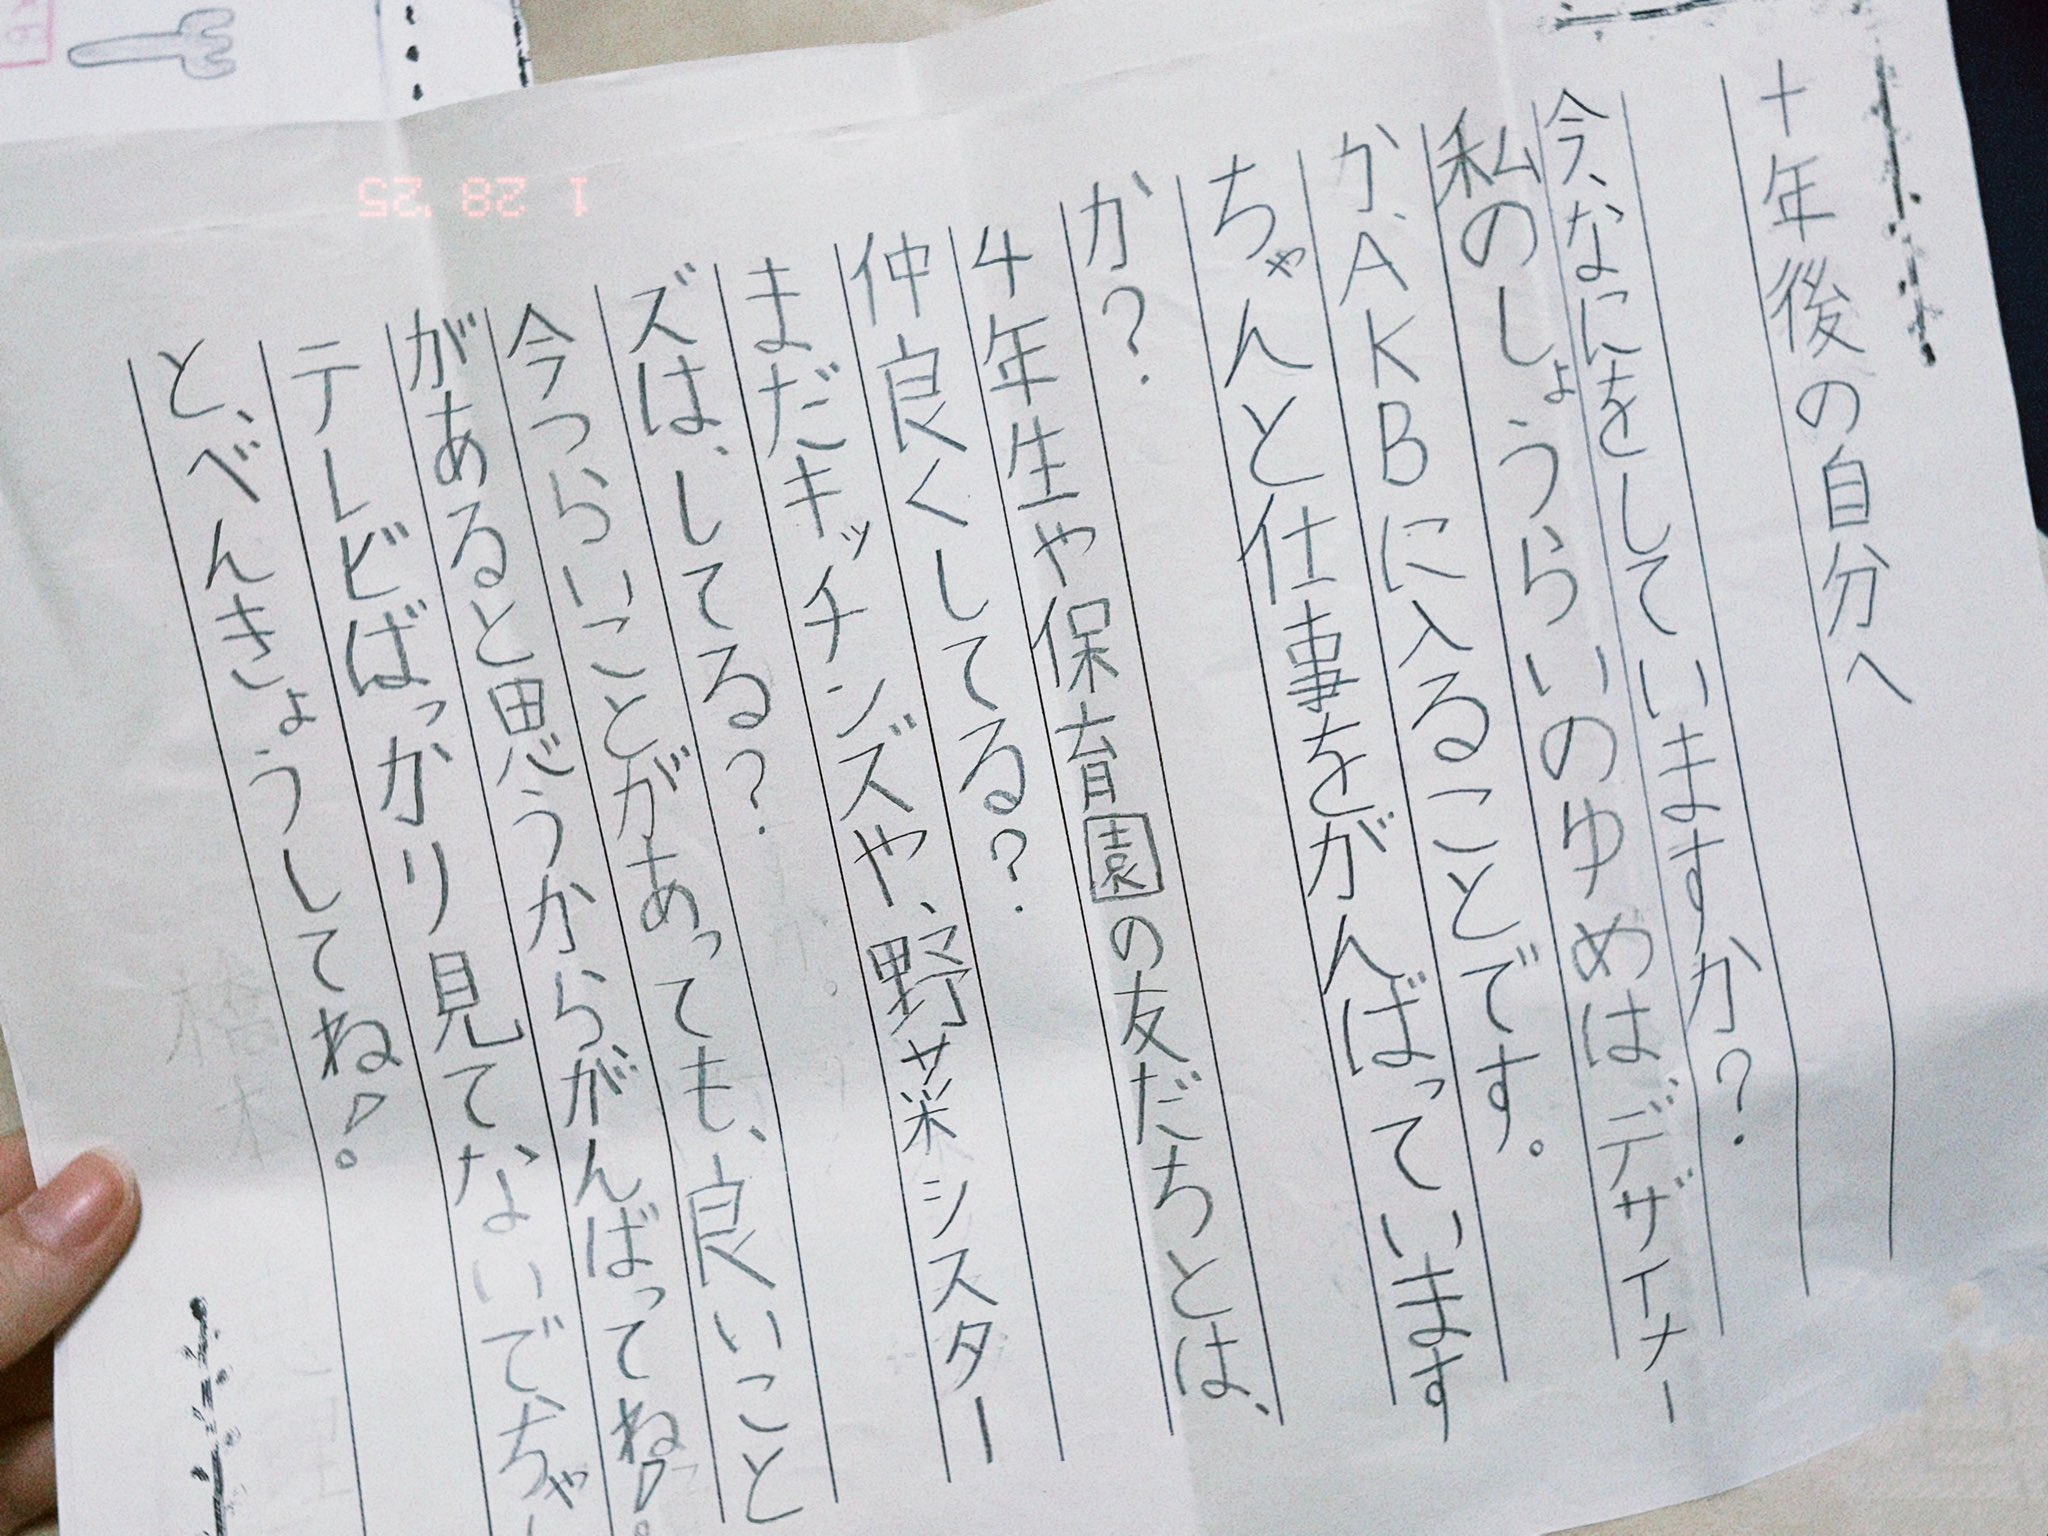 十年後の自分へ
今、なにをしていますか？
私のしょうらいのゆめは、デザイナー
か、AKBに入ることです。
ちゃんと仕事をがんばっています
か？
4年生や保育園の友だちとは、
仲良くしてる？
まだキッチンズや、野菜シスター
ズは、してる？
今つらいことがあっても、良いこと
があると思うからがんばってね！
テレビばっかり見てないで、ちゃん
と、べんきょうしてね！
1 28 '25